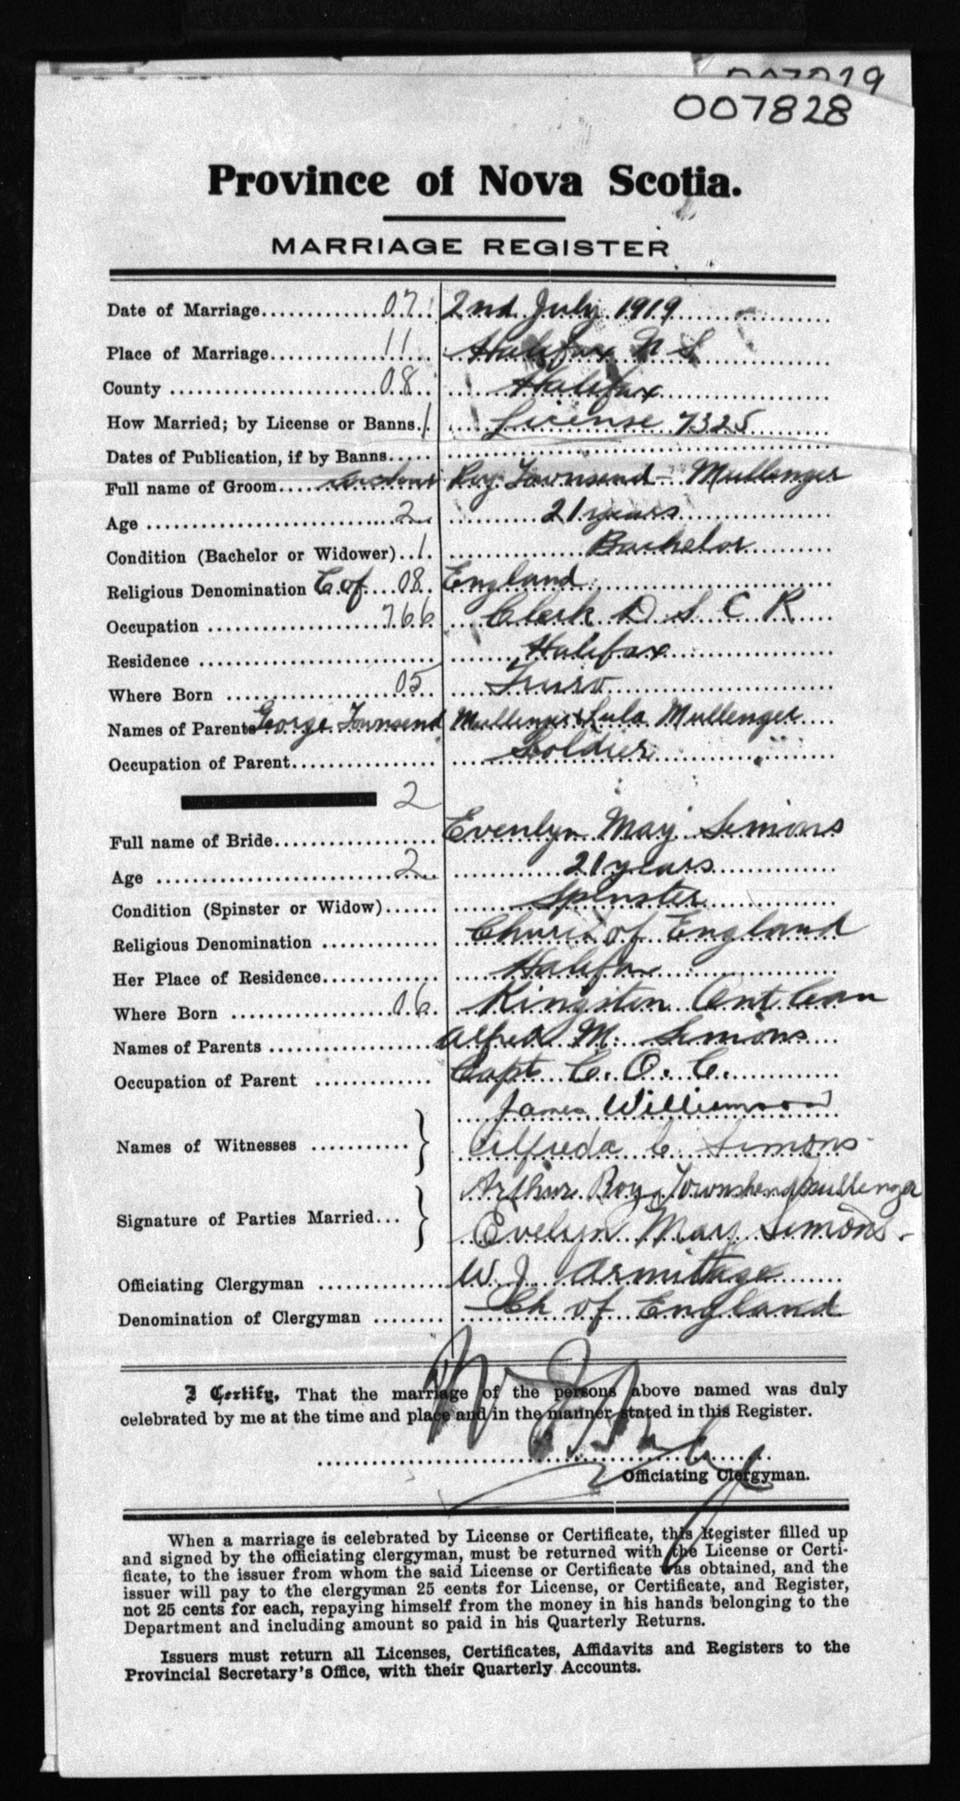 007828
Province of Nova Scotia.
MARRIAGE REGISTER
Date of Marriage 07 2nd July 1919
Place of Marriage 11 Halifax N S
County 08 Halifax
How Married; by License or Banns. 1 License 7325
Dates of Publication, if by Banns
Full name of Groom Arthur Roy Townsend - Mullenger
Age 2 21 years
Condition (Bachelor or Widower) 1 Bachelor
Religious Denomination C of 08 England
Occupation 766 Clerk D S C R
Residence Halifax
Where Born 05 Truro
Names of Parents George Townsend Mullenger & Lula Mullenger
Occupation of Parent Soldier
2
Full name of Bride Evenlyn May Simons
Age 2 21 years
Condition (Spinster or Widow) Spinster
Religious Denomination Church of England
Her Place of Residence Halifax
Where Born 06 Kingston Ont Can
Names of Parents Alfred M. Simons
Occupation of Parent Capt C. O. C.
James Williamson
Names of Witnesses Alfreda C Simons
Arthur Roy Townshend Mullenger
Signature of Parties Married Evelyn May Simons.
Officiating Clergyman W J Armitage
Denomination of Clergyman Ch of England
I Certify, That the marriage of the persons above named was duly
celebrated by me at the time and place and in the manner stated in this Register.
Officiating Clergyman.
When a marriage is celebrated by License or Certificate, this Register filled up
and signed by the officiating clergyman, must be returned with the License or Certi-
ficate, to the issuer from whom the said License or Certificate was obtained, and the
issuer will pay to the clergyman 25 cents for License, or Certificate, and Register,
not 25 cents for each, repaying himself from the money in his hands belonging to the
Department and including amount so paid in his Quarterly Returns.
Issuers must return all Licenses, Certificates, Affidavits and Registers to the
Provincial Secretary's Office, with their Quarterly Accounts.